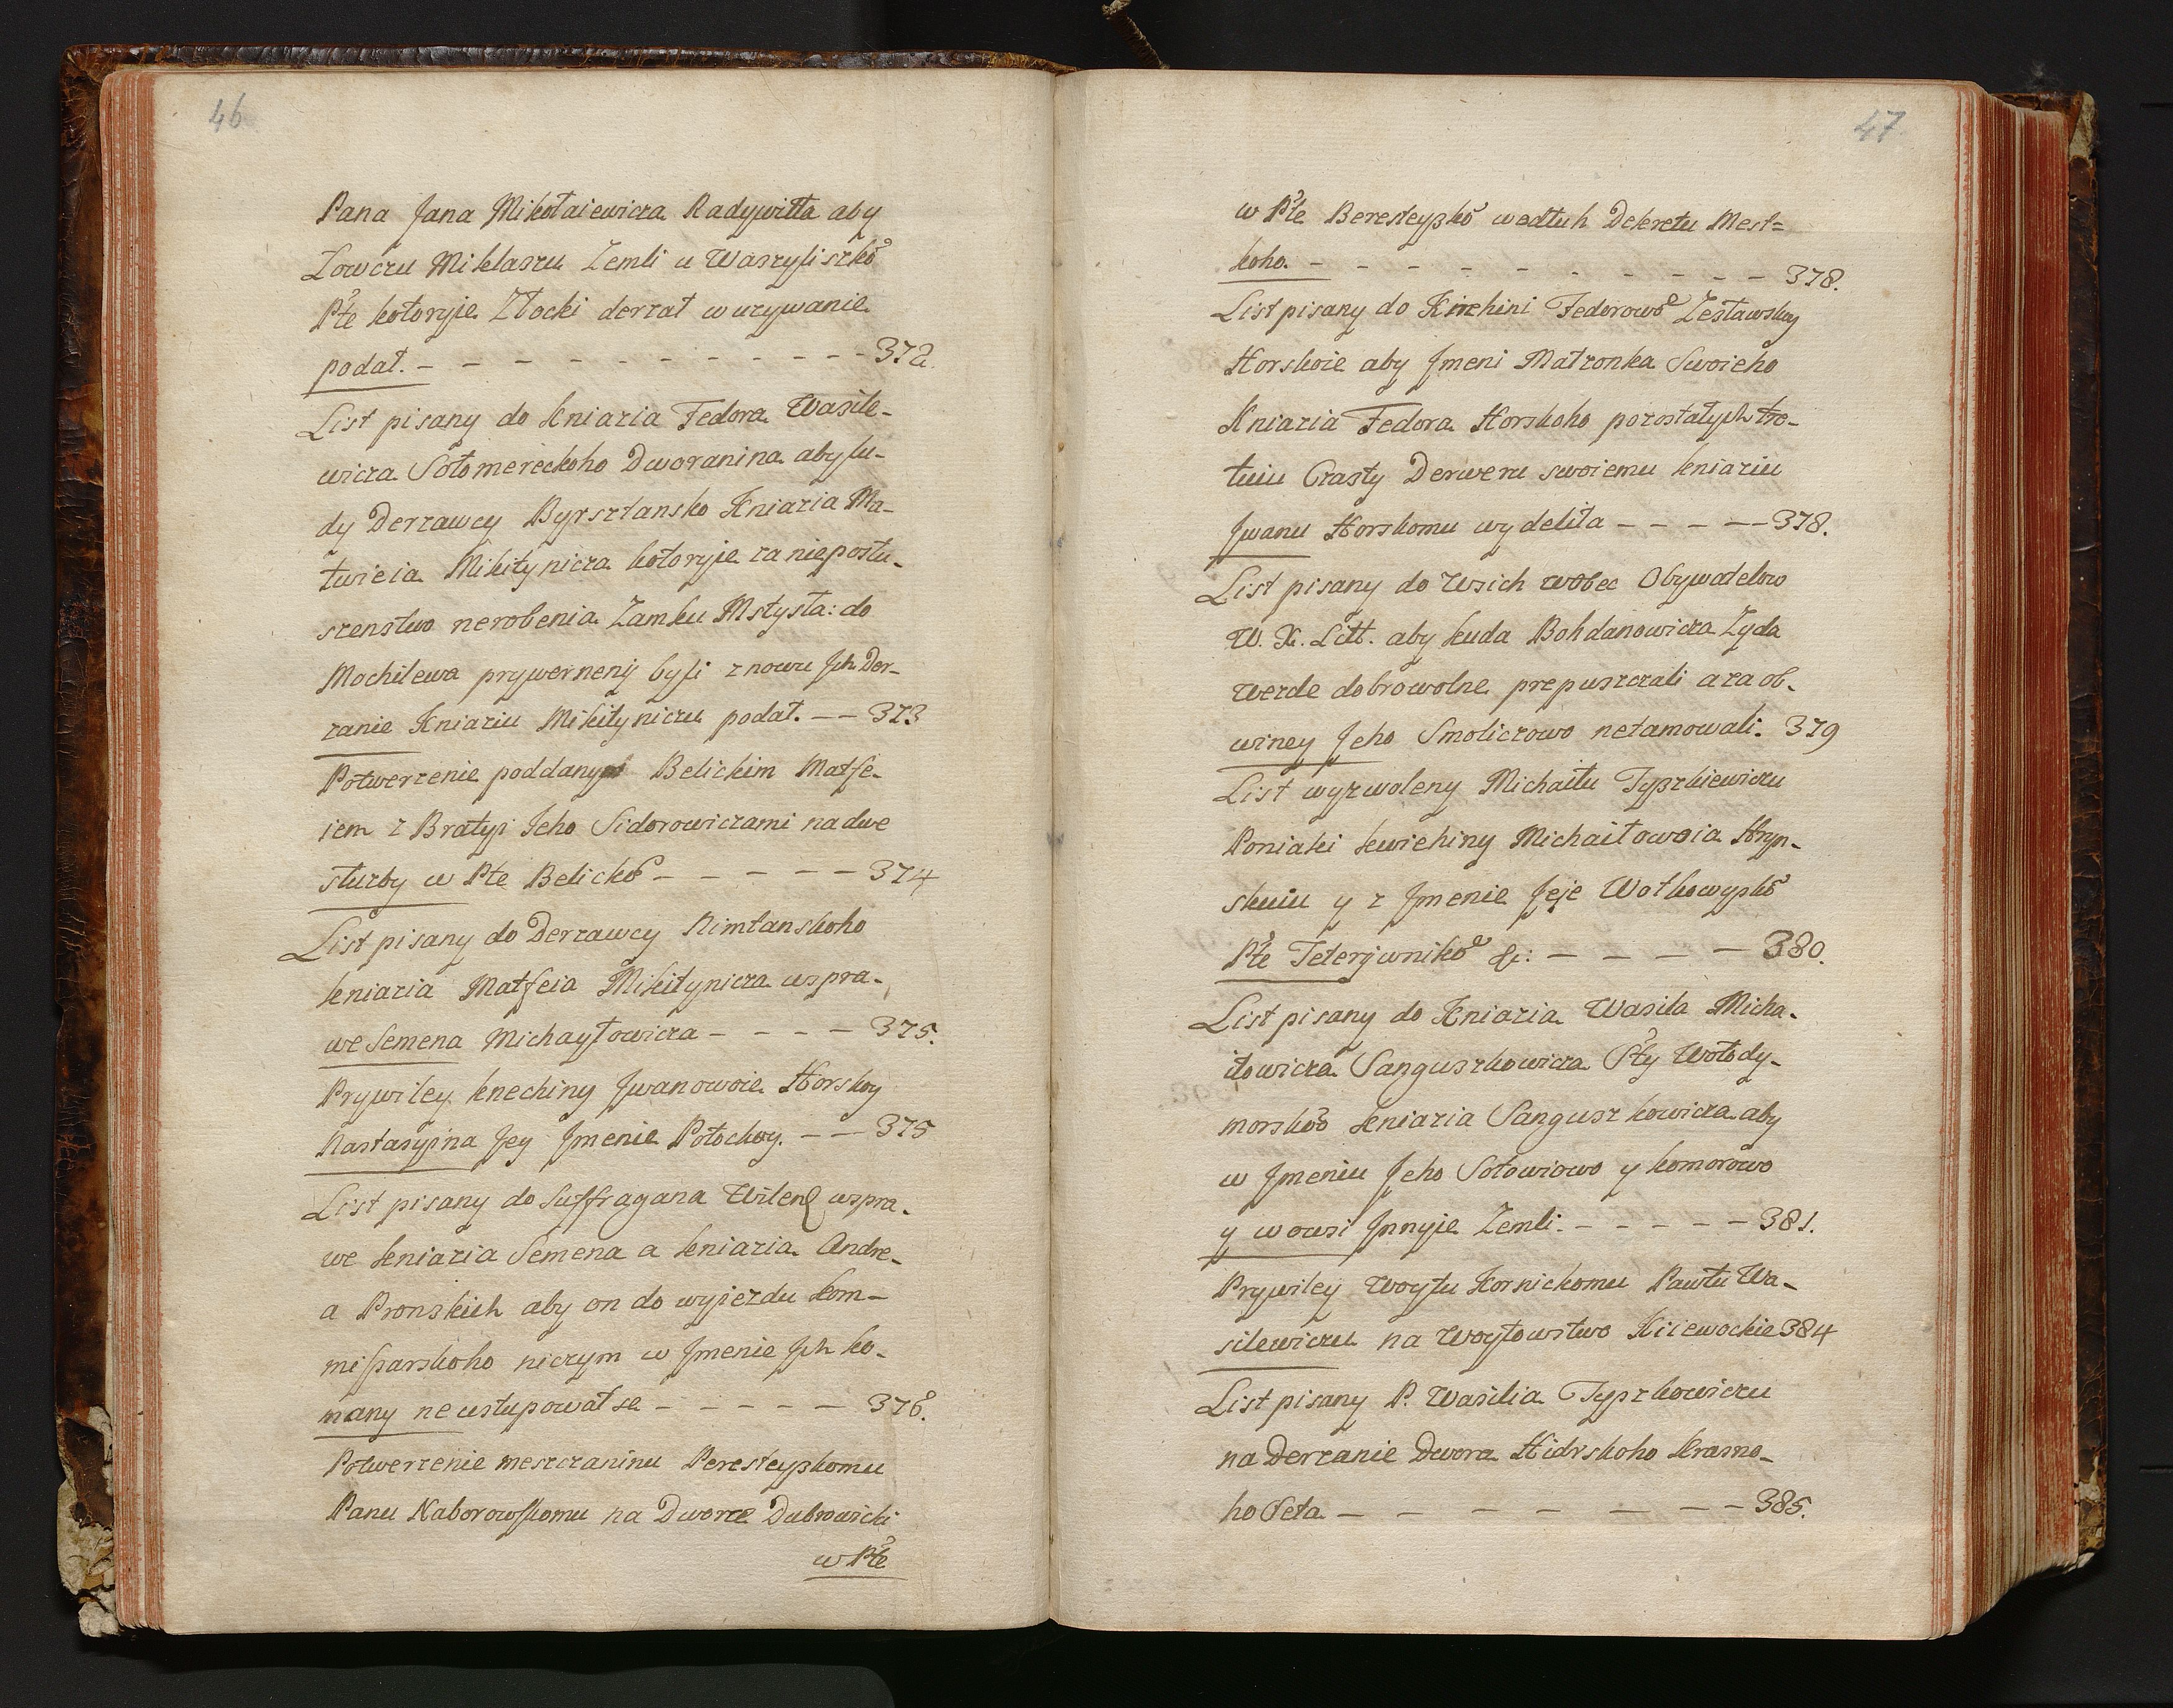 46
Pana Jana Mikołaiewicza Radywiłła aby
Łowczu Miklaszu Zemli u Waszyliszko
Pte kotoryie Złocki derzał w uzywanie
podał. - - - - - - - - - - 372.
List pisany do kniazia Fedora Wasile-
wicza Sołomereckoho Dworanina aby lu-
dy Derzawcy Byrsztansko Kniazia Ma-
twieia Mikitynicza kotoryie za nieposłu-
szenstwo nerobenia Zamku Mstysła: do
Mochilewa prywerneny byli znowu Jch Der-
zanie Kniaziu Mikityniczu podał. -- 373
Potwerzenie poddanym Belickim Matfe-
iem z Bratyi Jeho Sidorowiczami na dwe
służby w Pte Belicko - - - - - 374
List pisany do Derzawcy Rimtanskoho
kniazia Matfeia Mikitynicza w spra-
we Semena Michayłowicza - - - - 375.
Prywiley knechiny Jwanowoie Horskoy
Nastasyi na Jey Jmenie Połockoy. -- 375
List pisany do Suffragana Wilen w spra-
we kniazia Semena a kniazia Andre-
a Pronskich aby on do wyiezdu kom-
missarskoho niczym w Jmenie Jch ko-
many ne wstupował se - - - - - 376.
Potwerzenie meszczaninu Beresteyskomu
Panu Naborowskomu na Dworce Dubrowicki
w Pte
47
w Pte Beresteysko wedłuh Dekretu Mest=
koho. - - - - - - - - - - 378.
List pisany do Knehini Fedorowo Zesławskoy
Horskoie aby Jmeni Małzonka Swoieho
Kniazia Fedora Horskoho pozostałych tre-
tuiu Czasty Derweru swoiemu kniaziu
Jwanu Horskomu wydeliła - - - - - 378.
List pisany do Wsich wobec Obywatelow
W. X. Litt. aby kuda Bohdanowicza Zyda
werde dobrowolne prepuszczali a za ob-
winey Jeho Smoliczowo netamowali. 379
List wyzwoleny Michaiłu Tyszkiewiczu
Poniati kniehiny Michaiłowoia Hryn-
skuiu y z Jmenie Jeje Wołkowysko
Pte Teterywniko &c: - - - - 380.
List pisany do Kniazia Wasila Micha-
iłowicza Sanguszkowicza Sty Wołody-
morsko kniazia Sanguszkowicza aby
w Jmeniu Jeho Sołowiowo y komorowo
y w owsi Jnnyie Zemli. - - - - - 381.
Prywiley Woytu Kornickomu Pawłu Wa-
silewiczu na Woytowstwo Kiiewockie 384
List pisany P. Wasilia Tyszkowiczu
na Derzanie Dwora Hidrskoho krasno-
ho Seła - - - - - - - 385.